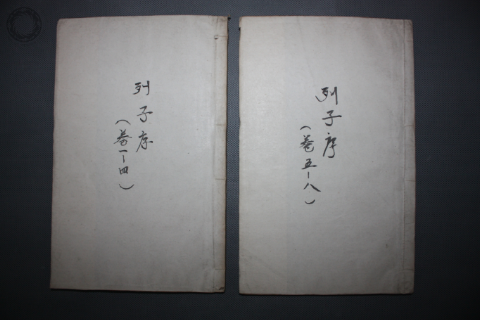 列子序
（卷一－四）
列子序
（卷五－八）